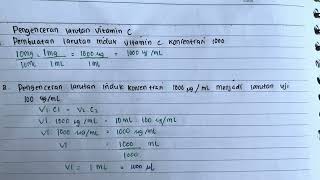 Pengenceran larutan vitamin C
Pembuatan larutan induk vitamin C konsentrasi 1000
10mg : 1mg = 1000 ug = 1000 ug/mL
10mL 1mL 1mL
2. Pengenceran larutan induk konsentrasi 1000 ug/mL menjadi larutan uji
100 ug/mL
V1. C1 = V2. C2
V1. 1000 ug/mL = 10mL . 100 ug/mL
V1. 1000 ug/mL = 1000 ug/mL
V1 = 1000
1000
V1 = 1 mL = 1000 µl